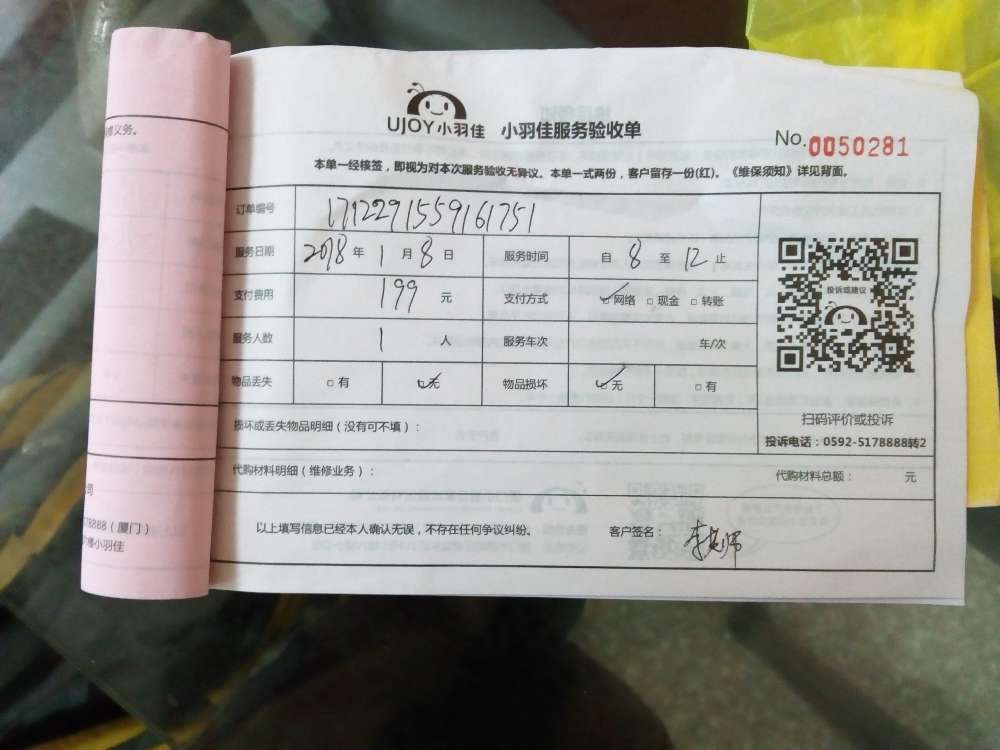 修义务。
UJOY小羽佳 小羽佳服务验收单
No.0050281
本单一经核签，即视为对本次服务验收无异议。本单一式两份，客户留存一份(红)。《维保须知》详见背面。
订单编号 1712291559161751
服务日期 2018 年 1 月 8 日 服务时间 自 8 至 12 止
支付费用 199 元 支付方式 网络 现金 转账
服务人数 1 人 服务车次 车/次
物品丢失 有 无 物品损坏 无 有
投诉或建议
扫码评价或投诉
投诉电话：0592-5178888转2
损坏或丢失物品明细（没有可不填）：
代购材料明细（维修业务）： 代购材料总额： 元
以上填写信息已经本人确认无误，不存在任何争议纠纷。 客户签名：
司
78888（厦门）
楼小羽佳